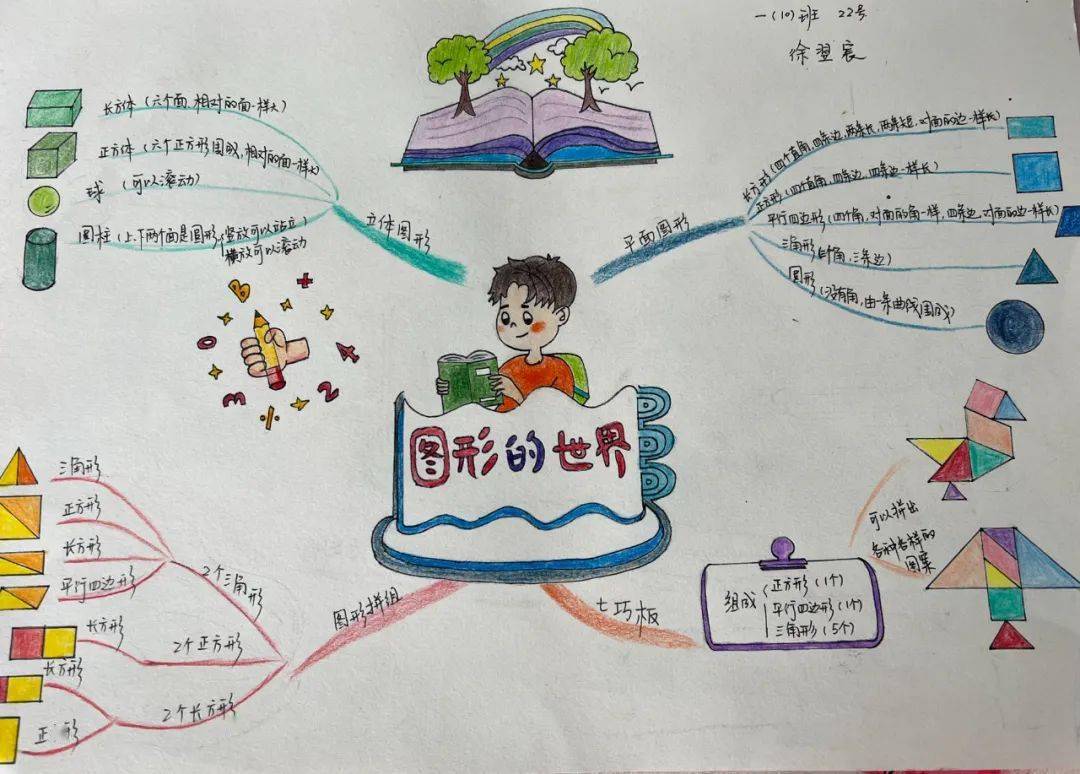 一(10)班 22号
徐翌宸
长方体(六个面,相对的面一样大)
正方体(六个正方形围成,相对的面一样大)
球 (可以滚动)
圆柱(上下两个面是圆形,竖放可以站立
横放可以滚动
立体图形
平面图形
长方形(四个直角,四条边,两条长,两条短,对面的边一样长)
正方形(四个直角,四条边,四条边一样长)
平行四边形(四个角,对面的角一样,四条边,对面的边一样长)
三角形(角,三条边)
圆形(没有角,由一条曲线围成)
0 3 ÷ 2 4 + 8
图形的世界
三角形
正方形
长方形
平行四边形
2个三角形
长方形
2个正方形
长方形
正 形
2个长方形
图形拼组
七巧板
组成
正方形(1个)
平行四边形(1个)
三角形(5个)
可以拼出
各种各样的
图案